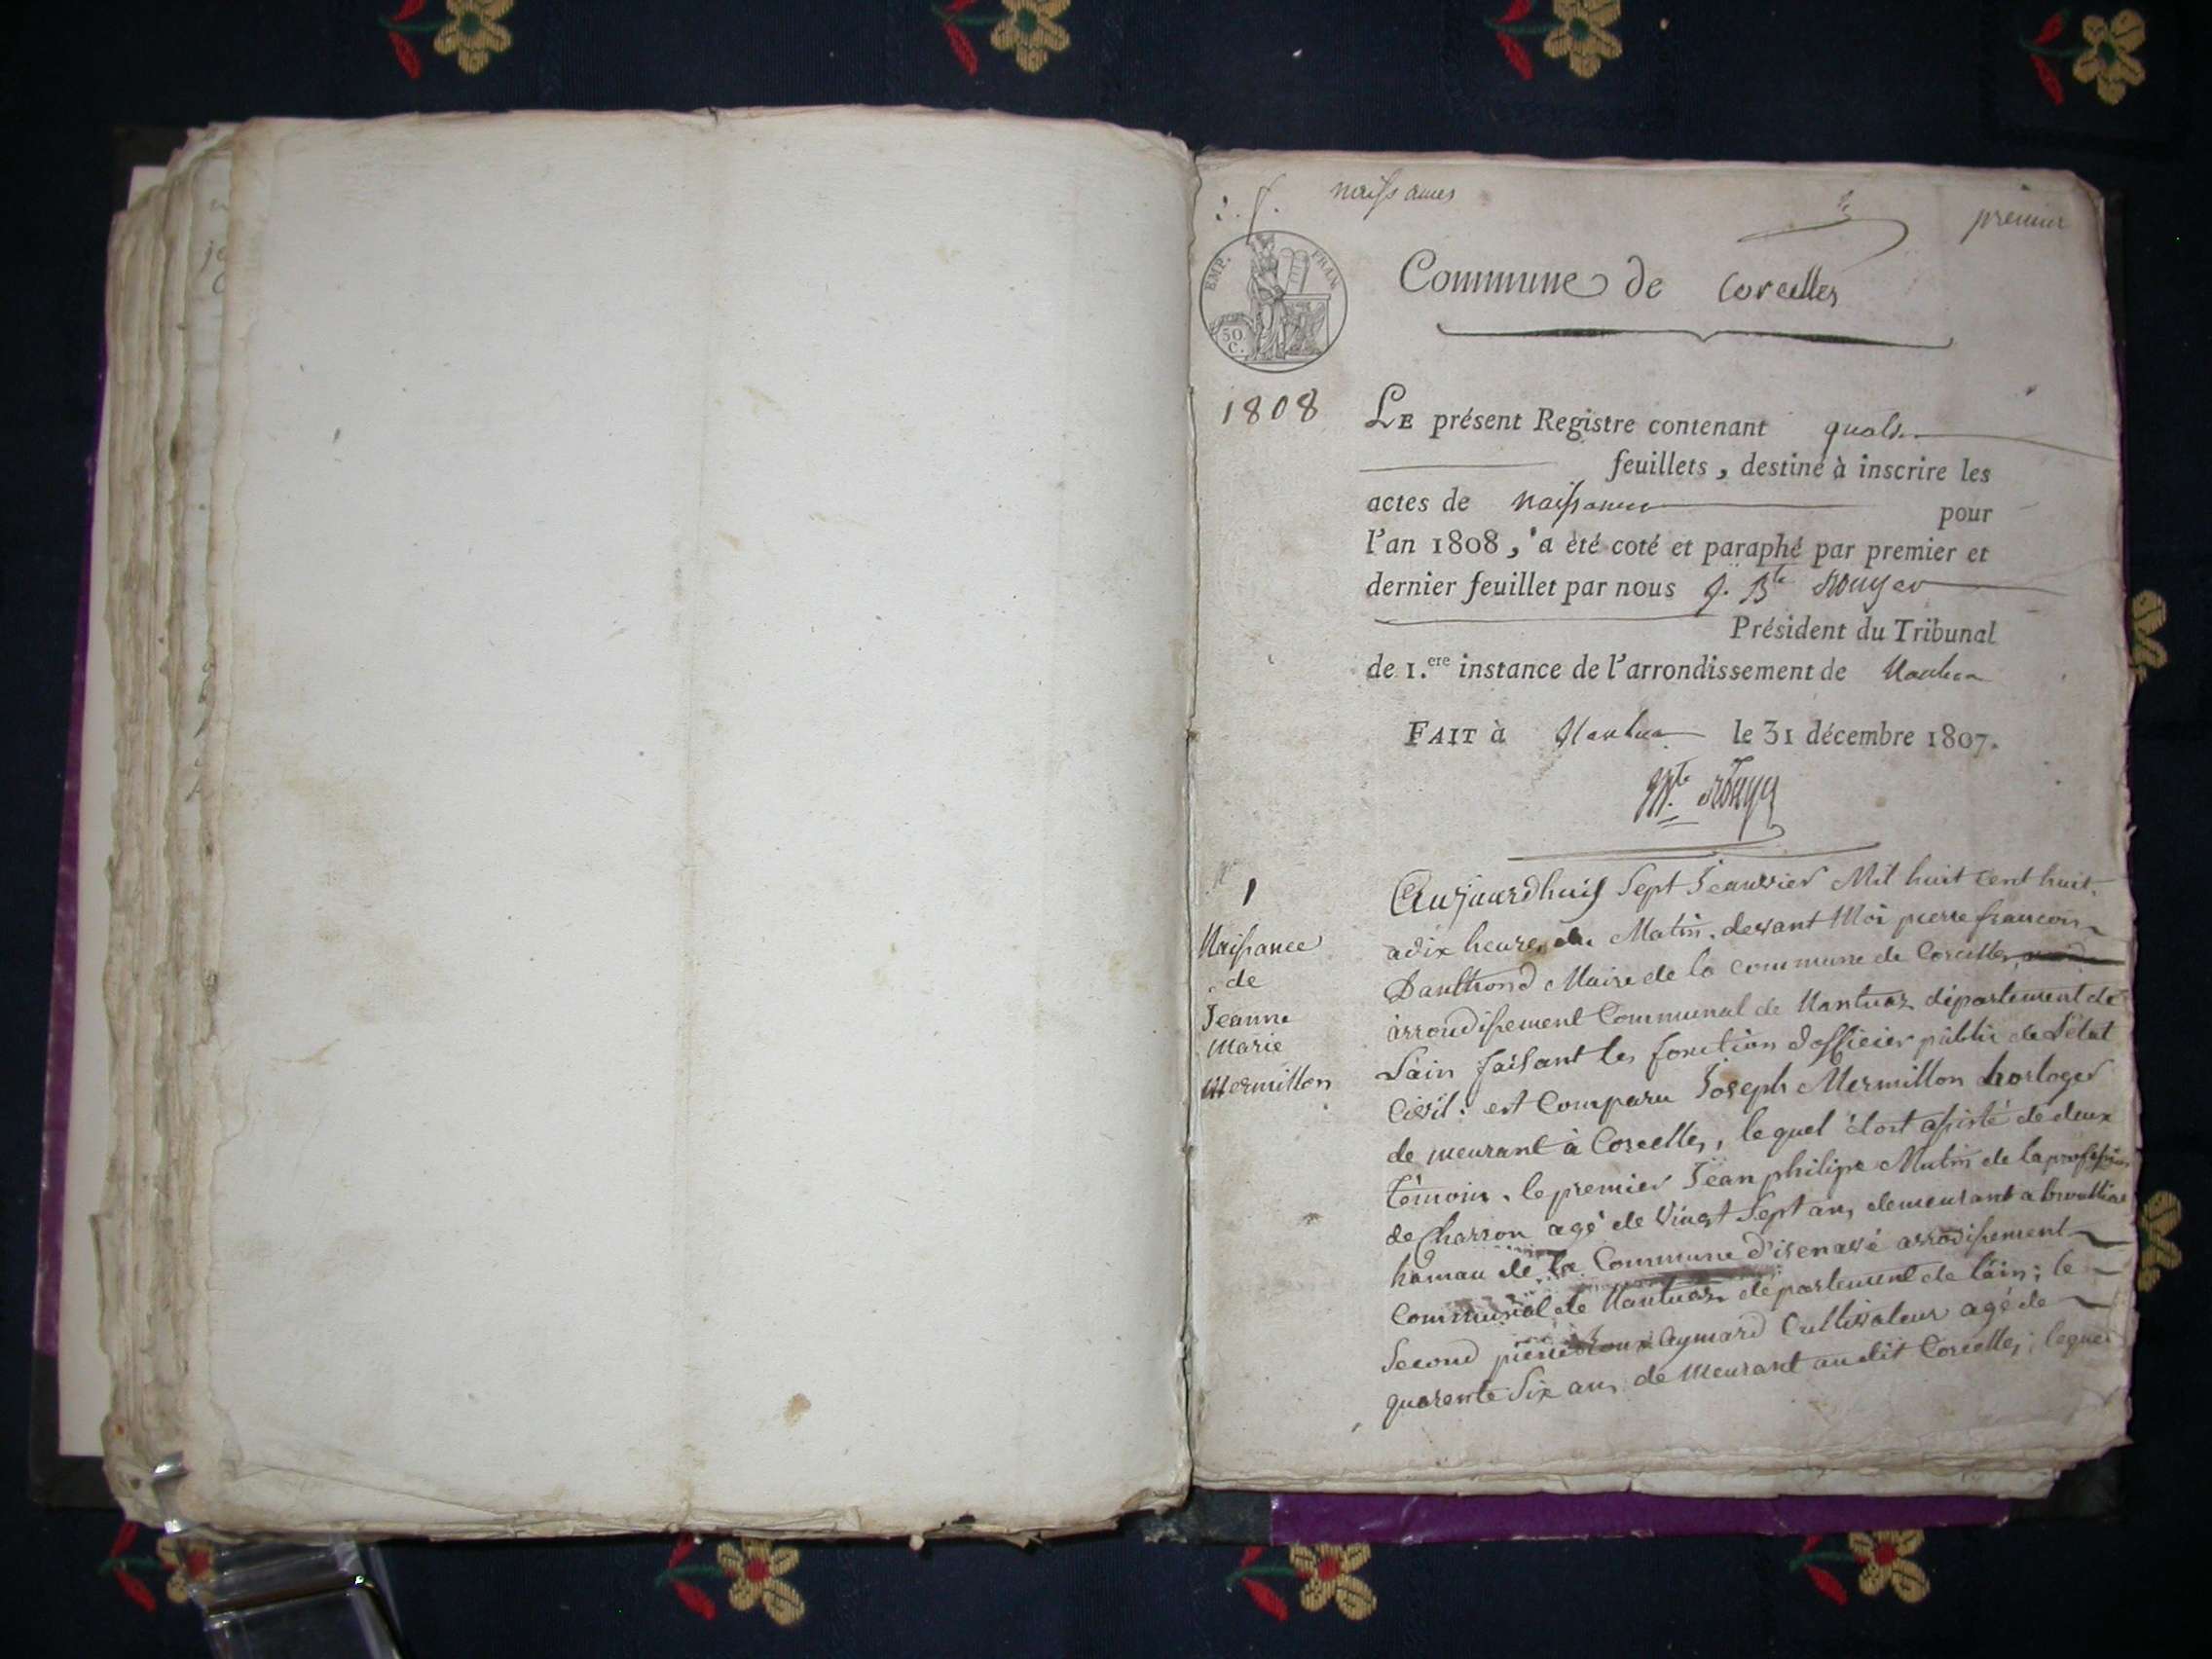 naissances
premier
EMP. FRAN.
50
C.
Commune de Corcelles
1808
LE présent Registre contenant
feuillets, destiné à inscrire les
actes de naissances pour
l'an 1808, a été coté et paraphé par premier et
dernier feuillet par nous J. Bte Rouyer
Président du Tribunal
de 1.ere instance de l'arrondissement de Nantua
FAIT à Nantua le 31 décembre 1807.
1
Naissance
de
Jeanne
Marie
Mermillon
Aujourdhuij Sept Jeanvier Mil huit cent huit.
a dix heures du Matin. devant Moi pierre francois
Maire de la commune de Corcelles
arrondissement Communal de Nantuaz département de
L'ain faisant les fonction d'officier public de L'état
Civil: est Comparu Joseph Mermillon horloger
de meurant à Corcelles, le quel étant assisté de deux
témoins. le premier Jean philipe Mutin de la profession
de Charron agé de Vingt Sept ans demeurant a
hamau de la Commune d'isenave arrodissement
Communal de Nantuaz département de l'ain; le
Second pierre Roux Aymard Cultivateur agé de
quarente Six ans de meurant au dit Corcelles; lequel